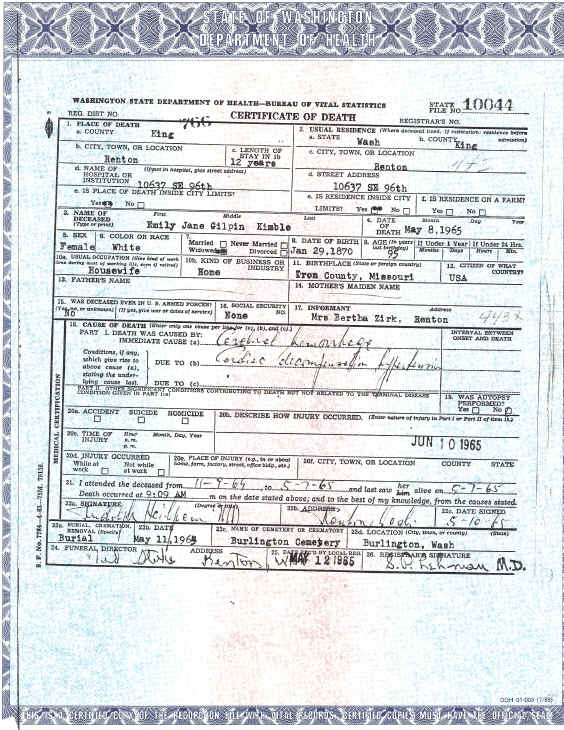 STATE OF WASHINGTON
DEPARTMENT OF HEALTH
WASHINGTON STATE DEPARTMENT OF HEALTH—BUREAU OF VITAL STATISTICS
STATE FILE NO. 10044
REG. DIST NO. 766 CERTIFICATE OF DEATH REGISTRAR'S NO.
1. PLACE OF DEATH
a. COUNTY King
2. USUAL RESIDENCE (Where deceased lived. If institution: residence before admission)
a. STATE Wash b. COUNTY King
b. CITY, TOWN, OR LOCATION Renton
c. LENGTH OF STAY IN 1b 12 years
c. CITY, TOWN, OR LOCATION Renton
d. NAME OF HOSPITAL OR INSTITUTION (If not in hospital, give street address) 10637 SE 96th
d. STREET ADDRESS 10637 SE 96th
e. IS PLACE OF DEATH INSIDE CITY LIMITS? Yes No
e. IS RESIDENCE INSIDE CITY LIMITS? Yes No
f. IS RESIDENCE ON A FARM? Yes No
3. NAME OF DECEASED (Type or print) First Middle Last
Emily Jane Gilpin Kimble
4. DATE OF DEATH Month Day Year
May 8,1965
5. SEX Female
6. COLOR OR RACE White
7. Married Never Married Widowed Divorced
8. DATE OF BIRTH Jan 29,1870
9. AGE (In years last birthday) 95
If Under 1 Year Months Days
If Under 24 Hrs. Hours Min.
10a. USUAL OCCUPATION (Give kind of work done during most of working life, even if retired) Housewife
10b. KIND OF BUSINESS OR INDUSTRY None
11. BIRTHPLACE (State or foreign country) Iron County, Missouri
12. CITIZEN OF WHAT COUNTRY? USA
13. FATHER'S NAME
14. MOTHER'S MAIDEN NAME
15. WAS DECEASED EVER IN U.S. ARMED FORCES? (Yes, no, or unknown) (If yes, give war or dates of service) No
16. SOCIAL SECURITY NO. None
17. INFORMANT Address
Mrs Bertha Zirk, Renton
18. CAUSE OF DEATH (Enter only one cause per line for (a), (b), and (c).)
INTERVAL BETWEEN ONSET AND DEATH
PART I. DEATH WAS CAUSED BY:
IMMEDIATE CAUSE (a) Cerebral hemorrhage
Conditions, if any, which give rise to above cause (a), stating the underlying cause last.
DUE TO (b) Cardiac decompensation hypertension
DUE TO (c)
PART II. OTHER SIGNIFICANT CONDITIONS CONTRIBUTING TO DEATH BUT NOT RELATED TO THE TERMINAL DISEASE CONDITION GIVEN IN PART I(a)
19. WAS AUTOPSY PERFORMED? Yes No
MEDICAL CERTIFICATION
20a. ACCIDENT SUICIDE HOMICIDE
20b. DESCRIBE HOW INJURY OCCURRED. (Enter nature of injury in Part I or Part II of item 18.)
20c. TIME OF INJURY Hour a. m. p. m. Month, Day, Year
JUN 10 1965
20d. INJURY OCCURRED While at work Not while at work
20e. PLACE OF INJURY (e.g., in or about home, farm, factory, street, office bldg., etc.)
20f. CITY, TOWN, OR LOCATION COUNTY STATE
21. I attended the deceased from 11-9-64 to 5-7-65 and last saw her him alive on 5-7-65
Death occurred at 9:09 AM m on the date stated above; and to the best of my knowledge, from the causes stated.
22a. SIGNATURE (Degree or title) MD
22b. ADDRESS Renton, Wash
22c. DATE SIGNED 5-10-65
23a. BURIAL, CREMATION, REMOVAL (Specify) Burial
23b. DATE May 11,1965
23c. NAME OF CEMETERY OR CREMATORY Burlington Cemetery
23d. LOCATION (City, town, or county) (State) Burlington, Wash
24. FUNERAL DIRECTOR ADDRESS Renton, W
25. DATE REC'D BY LOCAL REG. MAY 12 1965
26. REGISTRAR'S SIGNATURE S.P. Lehman M.D.
DOH 01-003 (7/89)
THIS IS A CERTIFIED COPY OF THE RECORD ON FILE WITH VITAL RECORDS. CERTIFIED COPIES MUST HAVE THE OFFICIAL SEAL